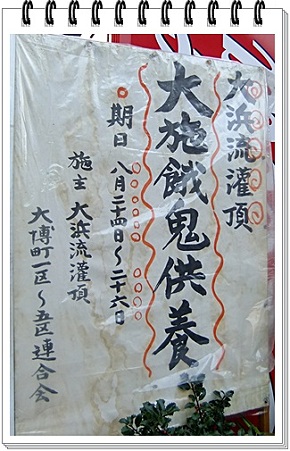 大浜流灌頂
大施餓鬼供養
期日 八月二十四日〜二十六日
施主 大浜流灌頂
大博町一区〜五区連合会